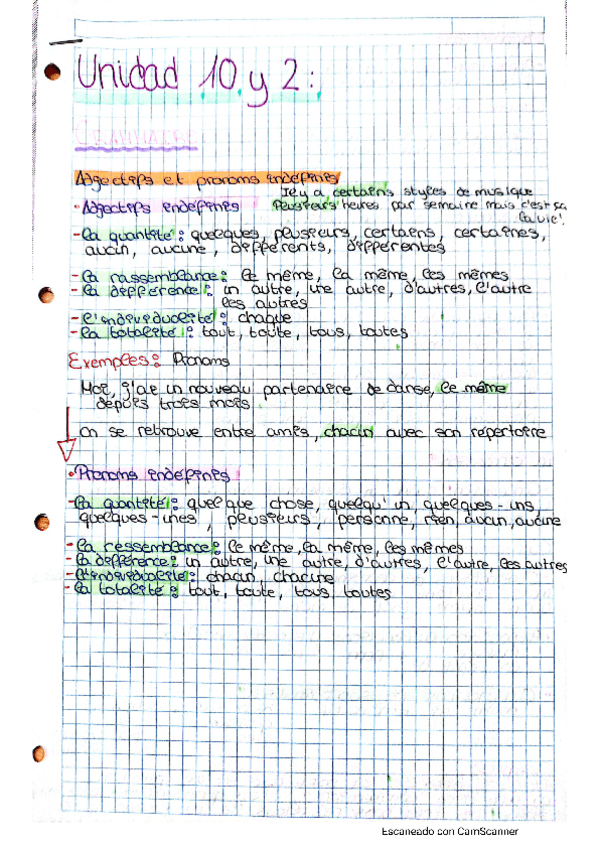 Unidad 10 y 2:
Grammaire
Adjectifs et pronoms indéfinis
Il y a certains styles de musique
• Adjectifs indéfinis Plusieurs heures par semaine mais c'est ça
la vie!
- La quantité: quelques, plusieurs, certains, certaines,
aucun, aucune, différents, différentes
- La rassemblance: le même, la même, les mêmes
- La différence: un autre, une autre, d'autres, l'autre
les autres
- L'individualité: chaque
- La totalité: tout, toute, tous, toutes
Exemples: Pronoms
Moi, j'ai un nouveau partenaire de danse, le même
depuis trois mois
On se retrouve entre amis, chacun avec son répertoire
• Pronoms indéfinis
- La quantité: quelque chose, quelqu'un, quelques-uns,
quelques-unes, plusieurs, personne, rien, aucun, aucune
- La ressemblance: le même, la même, les mêmes
- La différence: un autre, une autre, d'autres, l'autre, les autres
- L'individualité: chacun, chacune
- La totalité: tout, toute, tous, toutes
Escaneado con CamScanner